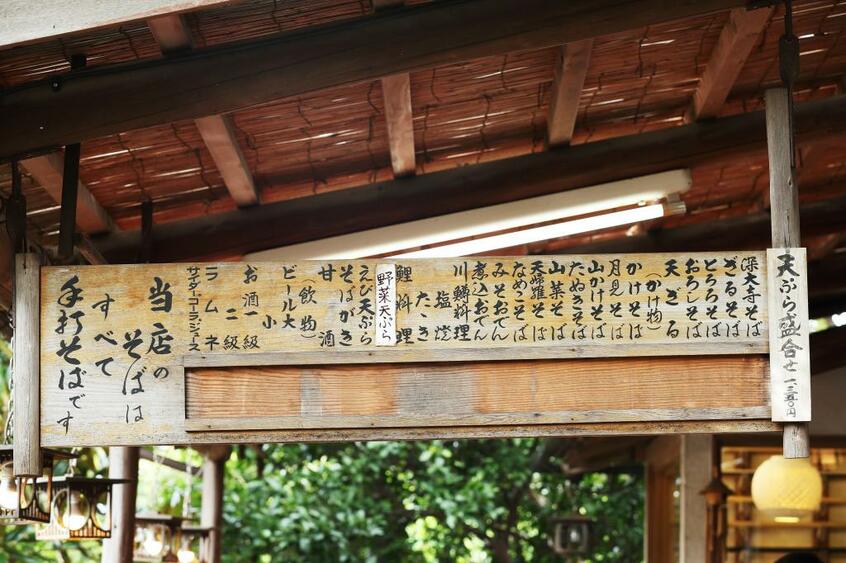 天ぷら盛合せ
深大寺そば
ざるそば
とろろそば
おろしそば
天ざる
（かけ物）
かけそば
月見そば
山かけそば
たぬきそば
山菜そば
天婦羅そば
なめこそば
煮込おでん
みそおでん
川鱒料理
塩焼
たたき
鯉料理
野菜天ぷら
えび天ぷら
そばがき
甘酒
（飲物）
ビール大
小
お酒一級
二級
ラムネ
サイダーコーラジュース
当店の
そばは
すべて
手打そばです